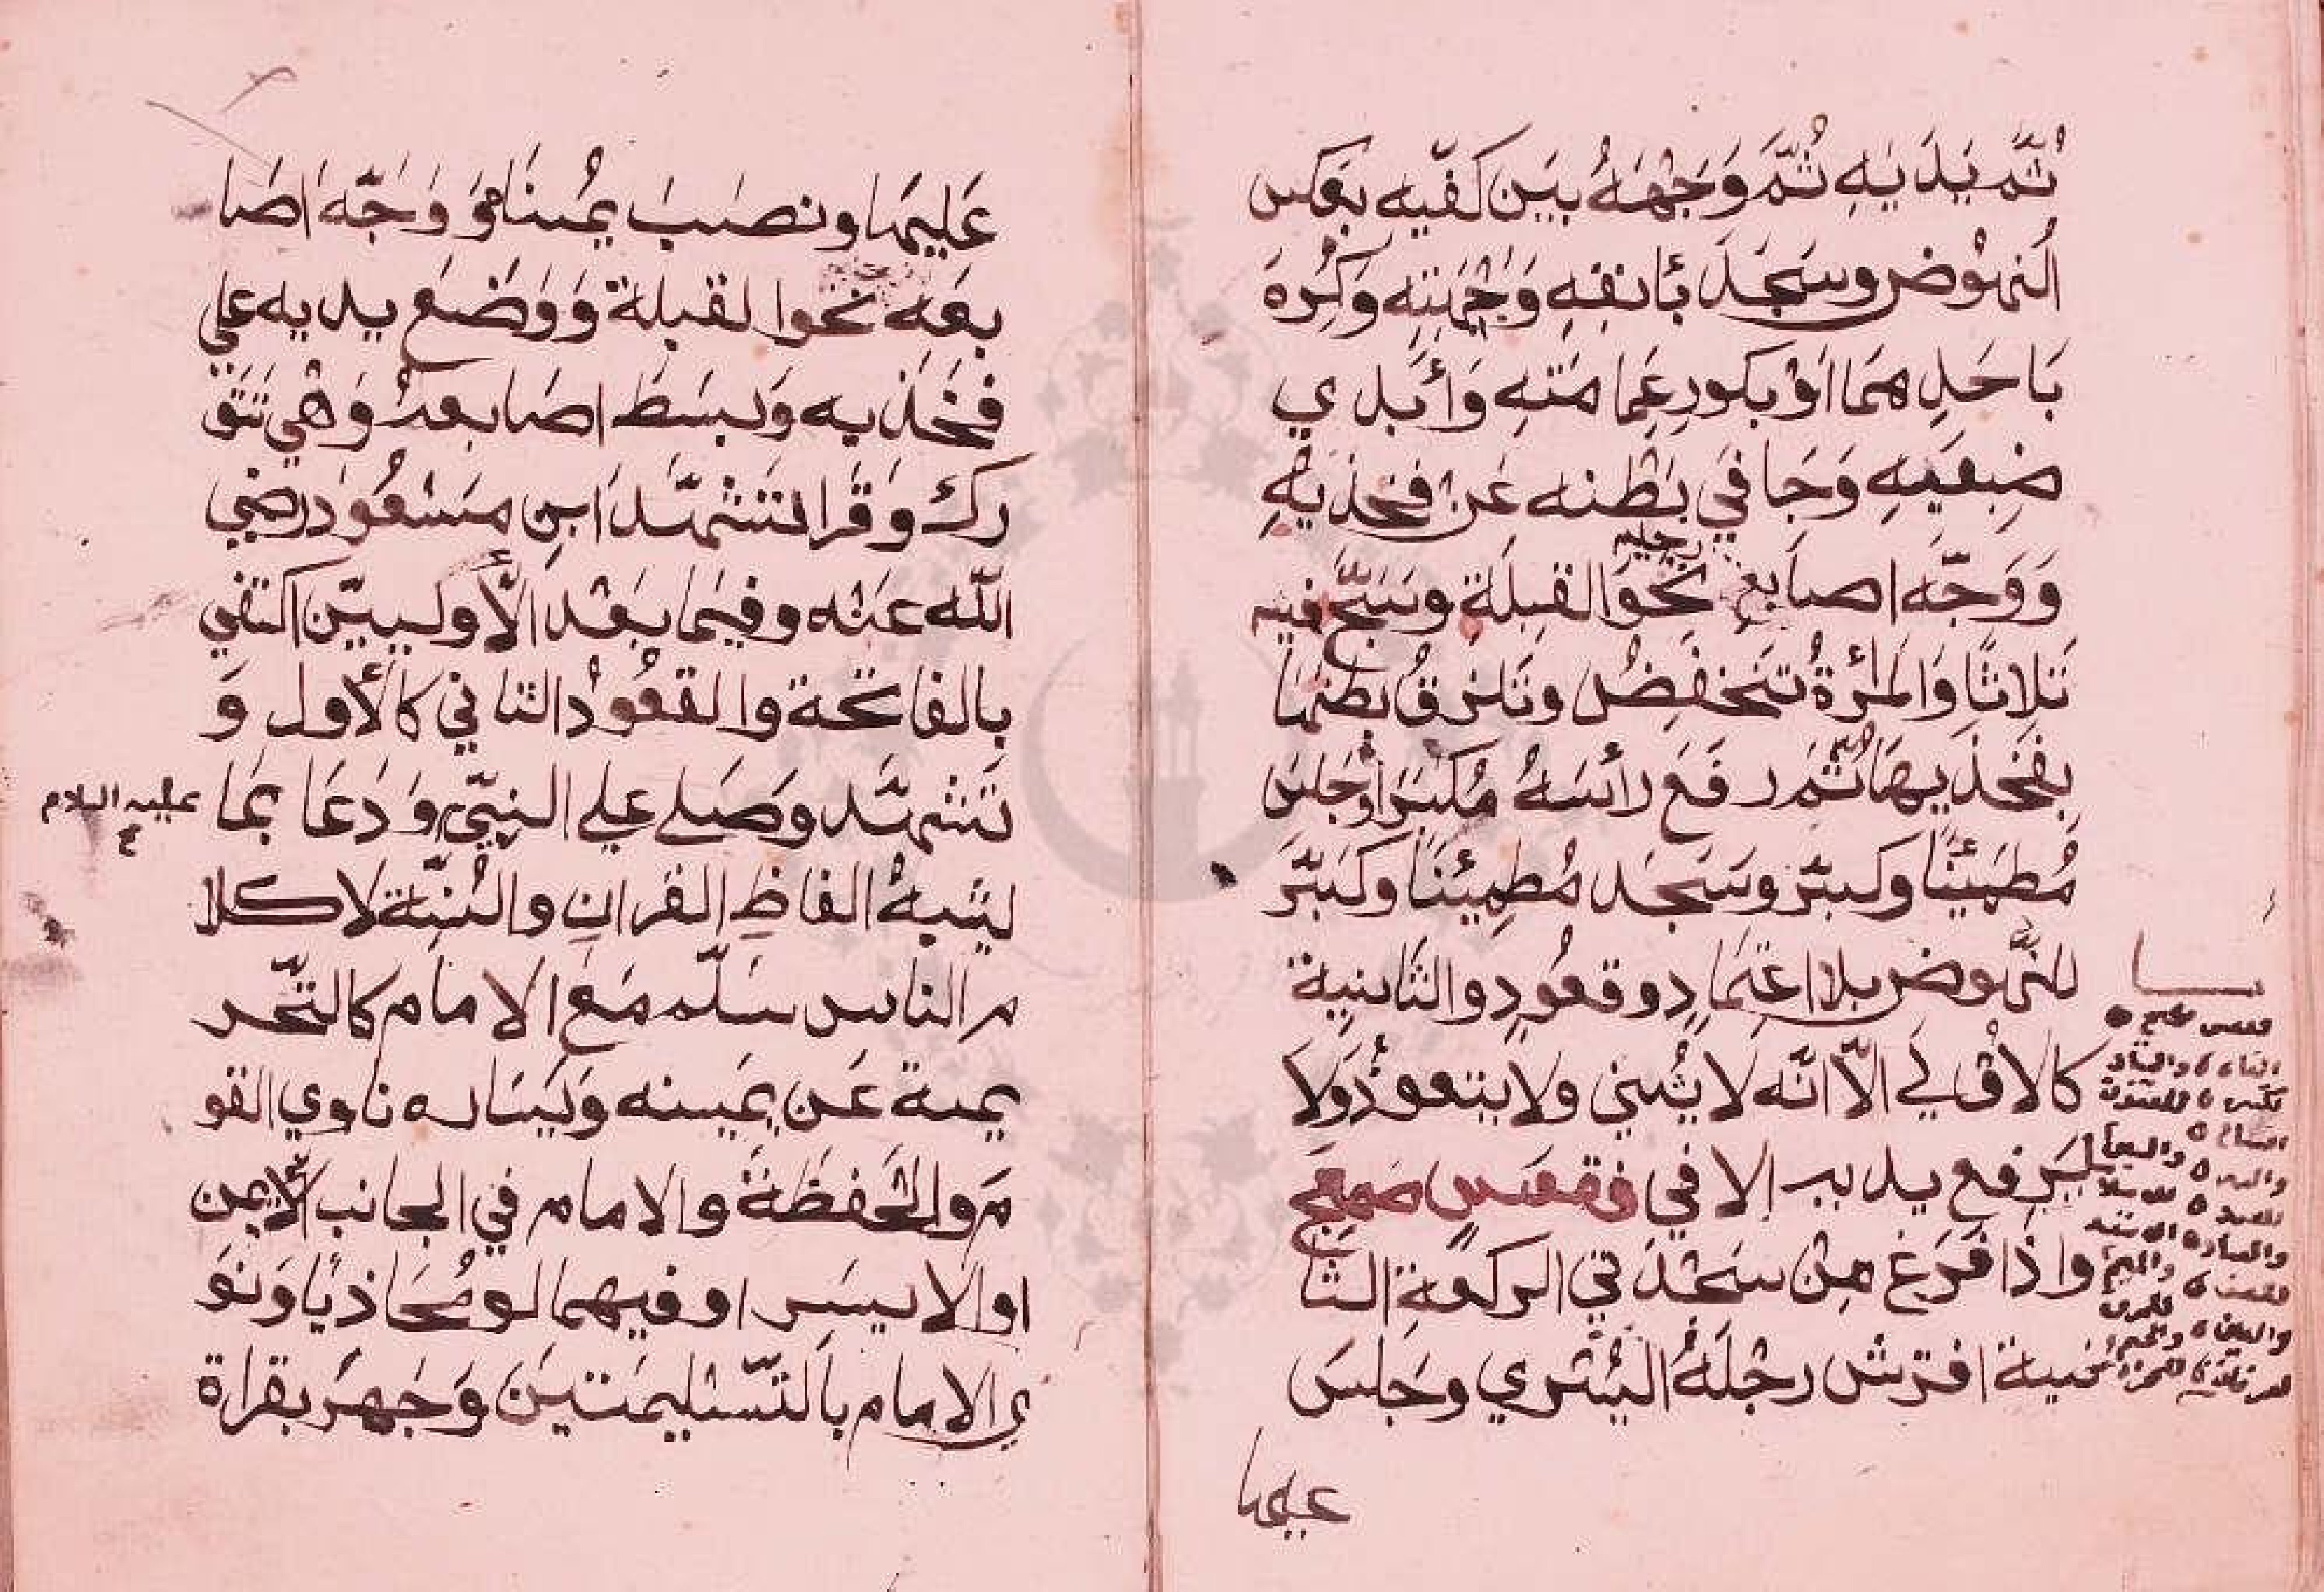 ثُمَّ يَدَيْهِ ثُمَّ وَجْهَهُ بَيْنَ كَفَّيْهِ بعَكس
النهُوْض وسَجَدَ بأنفِهِ وَجَبْهَتِه وَكُرِهَ
بَاحَدِهمَا اَوْ بكورِ عَمامَتهِ وَأَبْدي
ضِبعَيهِ وَجَافَي بَطْنه عَنْ فخذيهِ
وَوَجّه اصابع رجليه نحوَ القبلَة وسَبَّحَ فيه
ثلاثاً وَالمَرْأةُ تنخفِضُ وتَلزقُ بطنها
بفخذيها ثُمّ رفعَ رأسَهُ مُكبّراً وجَلسَ
مُطمَئنًا وكبّرَ وسَجَد مُطمِئنًا وكَبّرَ
للنّهوض بلا اعتمَادٍ وقعُودٍ والثَّانية
كالاوْلَي الّا انّه لا يُثني ولا يتعوذُ وَلا
يَرفع يديه الا في فقعَس صَمعَج
واذا فَرَغ مِنْ سَجْدَتي الركعَةِ الثَّا
نيَة افترش رجْلَهُ اليُسْري وجَلسَ
عليها
عَليهَا ونصَبَ يُمْناهُ وَوَجّهَ اصَا
بعَه نحوا لقبلة وَوَضَعَ يديه علي
فخَذيه وَبسَط اصَابعهُ وَهْي تتَو
رك وقرا تشهّدَ ابنِ مَسْعُود رضي
اللّه عنْه وفيمَا بعْد الأوليَيّن اكتفي
بالفاتحة والقعُودُ الثاني كالأول وَ
تَشهّد وصَلي علي النبيّ وَدَعَا بمَا
عليه السلام
يشبهُ الفاظِ القران والسُنّة لا كلا
م الناس سَلّم مَعَ الامام كالتّحر
يمة عَن يَمينه وَيَسَاره ناوي القو
مَ والحَفظَةَ والامام في الجانب الأيمن
او الايسَر او فيهما لو مُحَاذيًا وَنوَ
ي الامام بالتّسْليمَتينَ وَجَهرَ بقراة